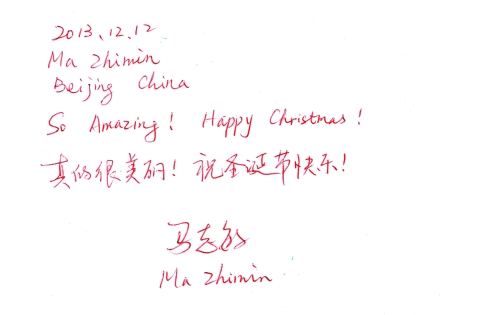 2013.12.12
Ma Zhimin
Beijing China
So Amazing! Happy Christmas!
真的很美丽！祝圣诞节快乐！
马志敏
Ma Zhimin